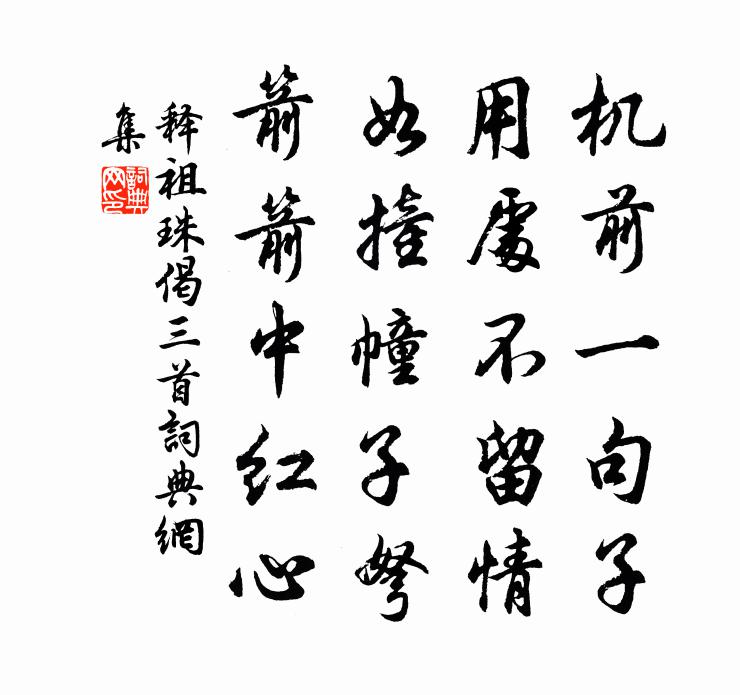 机前一句子
用處不留情
如撞幢子弩
箭箭中红心
释祖珠偈三首詞典網
集
詞典
网印